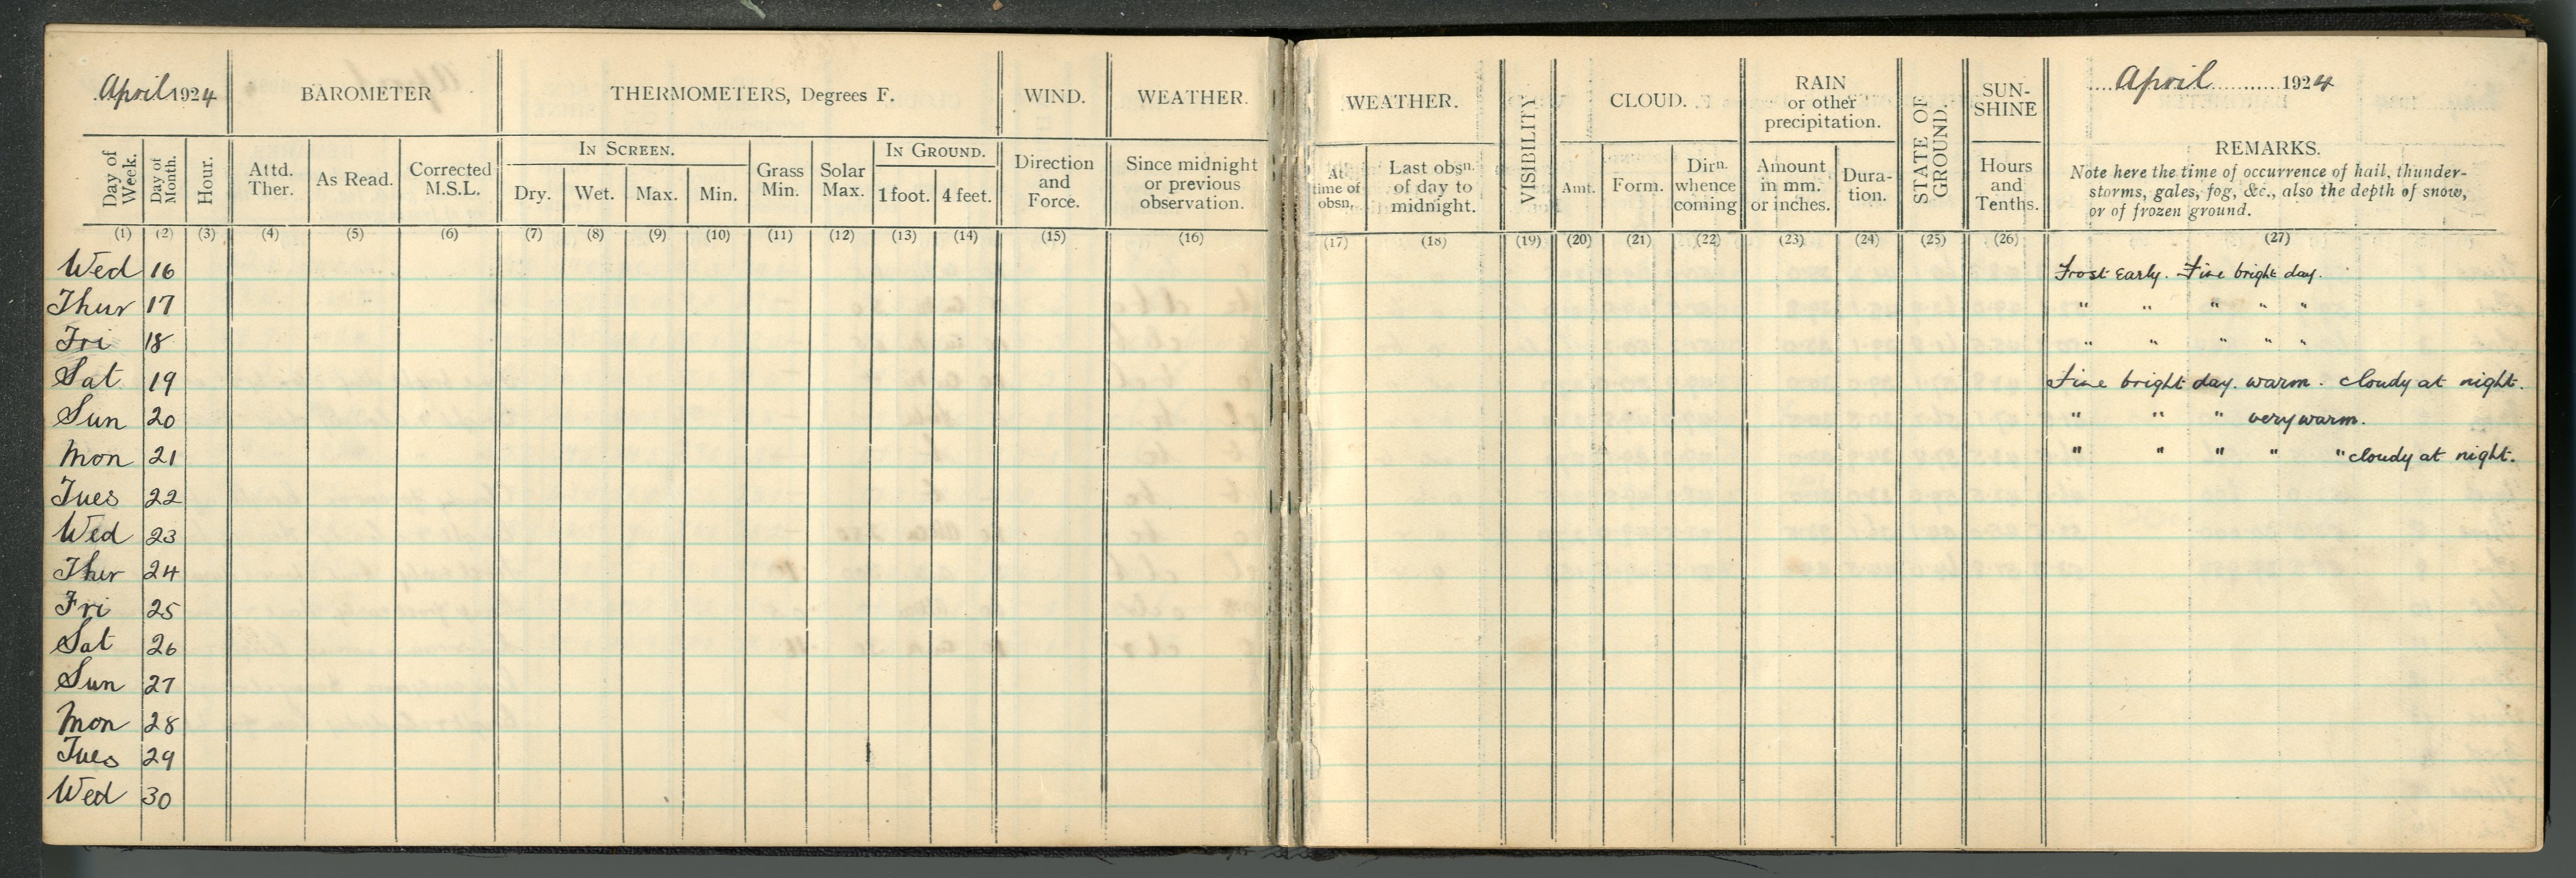 April 1924
BAROMETER
THERMOMETERS, Degrees F.
WIND.
WEATHER.
Day of Week.
Day of Month.
Hour.
Attd. Ther.
As Read.
Corrected M.S.L.
IN SCREEN.
Dry.
Wet.
Max.
Min.
Grass Min.
Solar Max.
IN GROUND.
1 foot.
4 feet.
Direction and Force.
Since midnight or previous observation.
(1) (2) (3) (4) (5) (6) (7) (8) (9) (10) (11) (12) (13) (14) (15) (16)
Wed 16
Thur 17
Fri 18
Sat 19
Sun 20
Mon 21
Tues 22
Wed 23
Thur 24
Fri 25
Sat 26
Sun 27
Mon 28
Tues 29
Wed 30
WEATHER.
VISIBILITY
CLOUD.
RAIN
or other
precipitation.
STATE OF GROUND.
SUN-
SHINE
April 1924
At time of obsn.
Last obsn. of day to midnight.
Amt.
Form.
Dirn. whence coming
Amount in mm. or inches.
Dura-
tion.
Hours and Tenths.
REMARKS.
Note here the time of occurrence of hail, thunder-
storms, gales, fog, &c., also the depth of snow,
or of frozen ground.
(17) (18) (19) (20) (21) (22) (23) (24) (25) (26) (27)
Frost early. Fine bright day.
" " " " "
" " " " "
Fine bright day. warm. cloudy at night.
" " " very warm.
" " " " " cloudy at night.